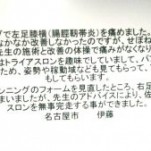 で左足膝横(腸脛靭帯炎)を痛めました。
なかなか改善しなかったのですが、せぼね
先生の施術と改善の体操で痛みがなくなり
はトライアスロンを趣味でしていまして、バ
ため、姿勢や稼動域なども見てもらって、
してもらいます。
ンニングのフォームを見直したところ、右足
が、先生のアドバイスにより、
スロンを無事完走する事ができました。
名古屋市 伊藤